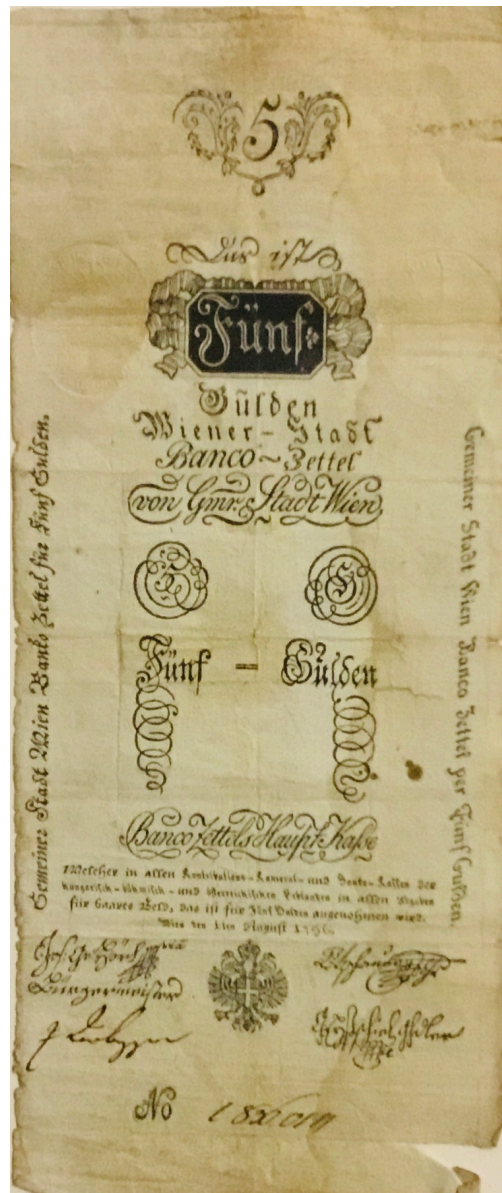 5
Das ist
Fünf
Gülden
Wiener-Stadt
Banco-Zettel
von Gmr. Stadt Wien
5 G
Fünf - Gülden
Banco Zettels Haupt Kasse
Welcher in allen Kontributions-Kameral-und Banko-Kassen der
hungarisch-böhmisch-und österreichischen Erblanden in allen
für baares Geld, das ist für Fünf Gulden angenohmen wird.
Wien den 1ten August 1796
Bürgermeister
No
Gemeiner Stadt Wien Banko Zettel für Fünf Gulden.
Gemeiner Stadt Wien Banco Zettel per Fünf Gulden.